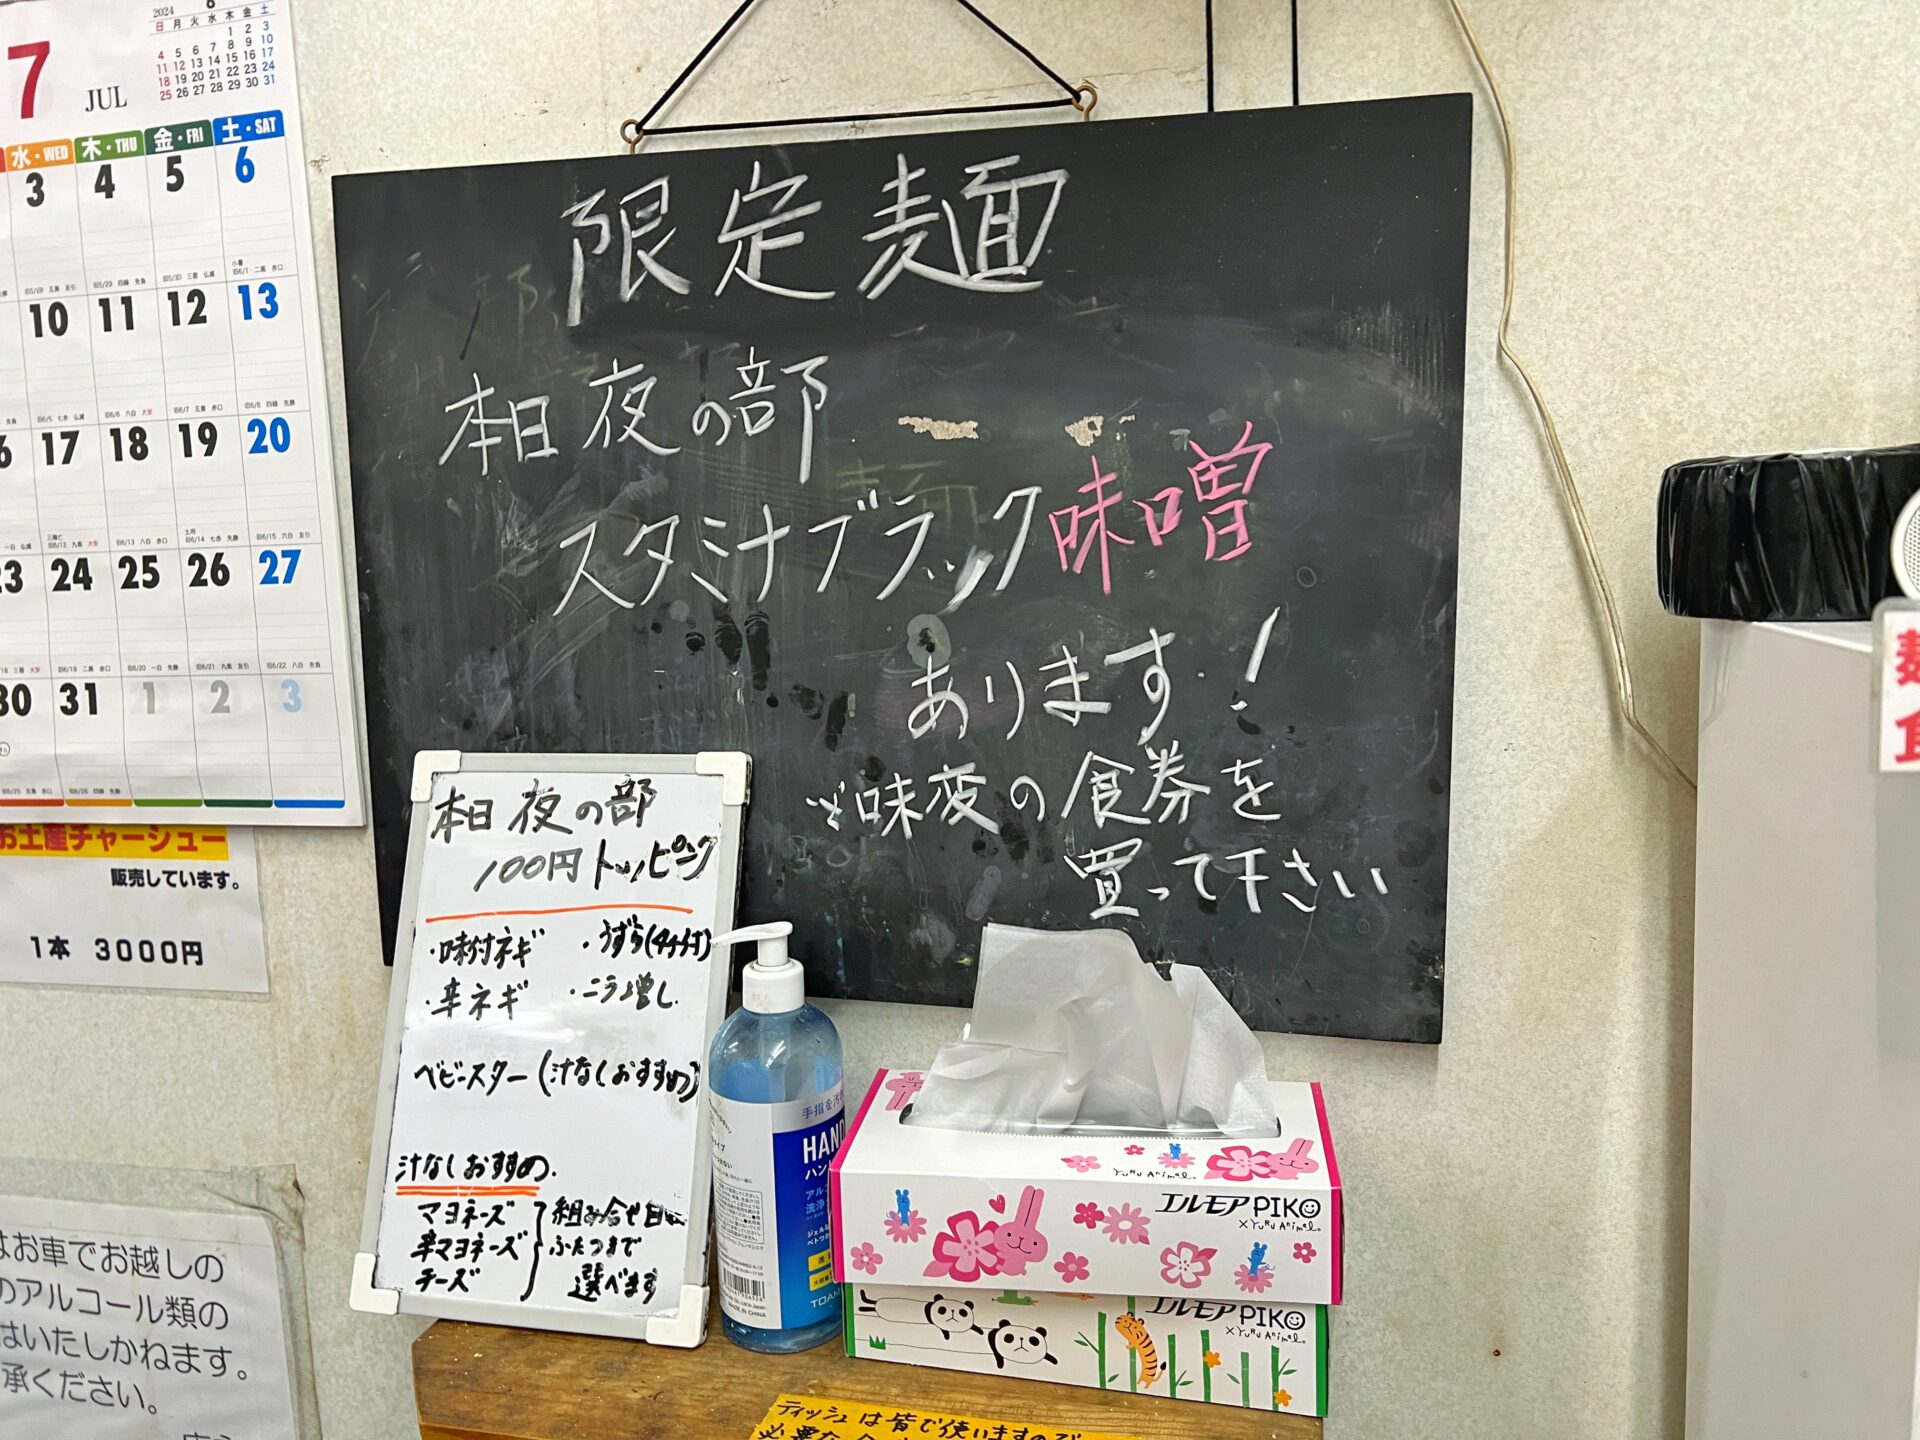 7
JUL
2024 8
日 月 火 水 木 金 土
1 2 3
4 5 6 7 8 9 10
11 12 13 14 15 16 17
18 19 20 21 22 23 24
25 26 27 28 29 30 31
水・WED 木・THU 金・FRI 土・SAT
3 4 5 6
10 11 12 13
17 18 19 20
23 24 25 26 27
30 31 1 2 3
お土産チャーシュー
販売しています。
1本 3000円
はお車でお越しの
のアルコール類の
はいたしかねます。
承ください。
限定麺
本日夜の部
スタミナブラック味噌
あります!
※味変の食券を
買って下さい
本日夜の部
100円トッピング
・味付ネギ ・うずら(4ケ付)
・辛ネギ ・ニラ増し
ベビースター(汁なしおすすめ)
汁なしおすすめ.
マヨネーズ
辛マヨネーズ
チーズ
組み合せ自由
ふたつまで
選べます
手指を
HAND
ハン
洗浄
MADE IN CHINA
Yuru Animal.
エルモア PIKO
×Yuru Animal.
エルモア PIKO
×Yuru Animal.
ティッシュは皆で使いますので
麺
食